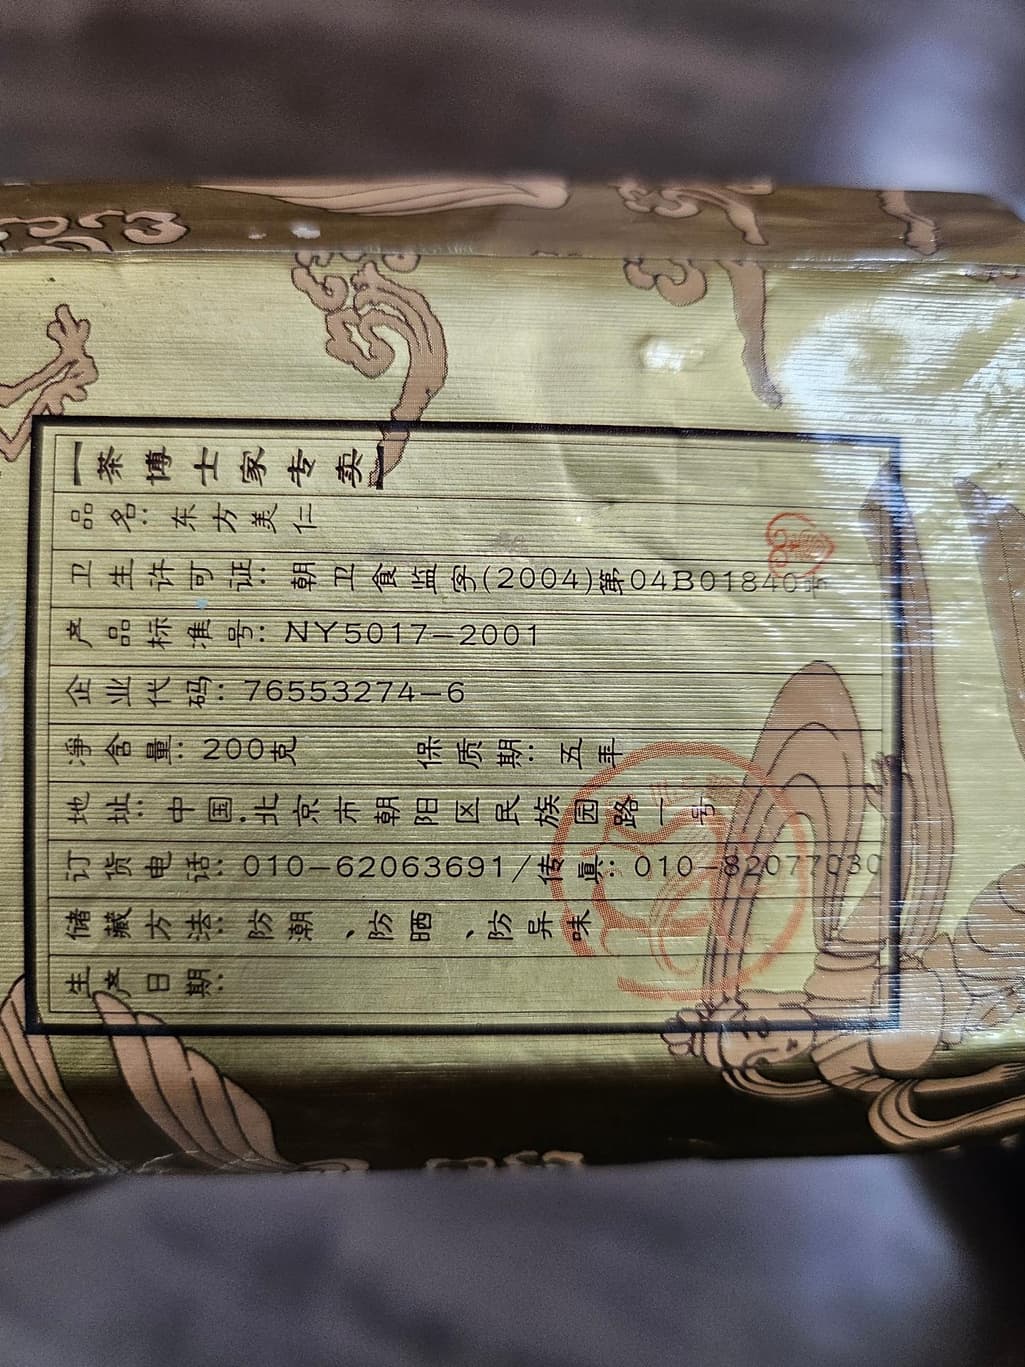 【茶博士家专卖】
品名：东方美仁
卫生许可证：朝卫食监字(2004)第04B01840号
产品标准号：NY5017-2001
企业代码：76553274-6
净含量：200克 保质期：五年
地址：中国·北京市朝阳区民族园路一号
订货电话：010-62063691/传真：010-82077030
储藏方法：防潮、防晒、防异味
生产日期：